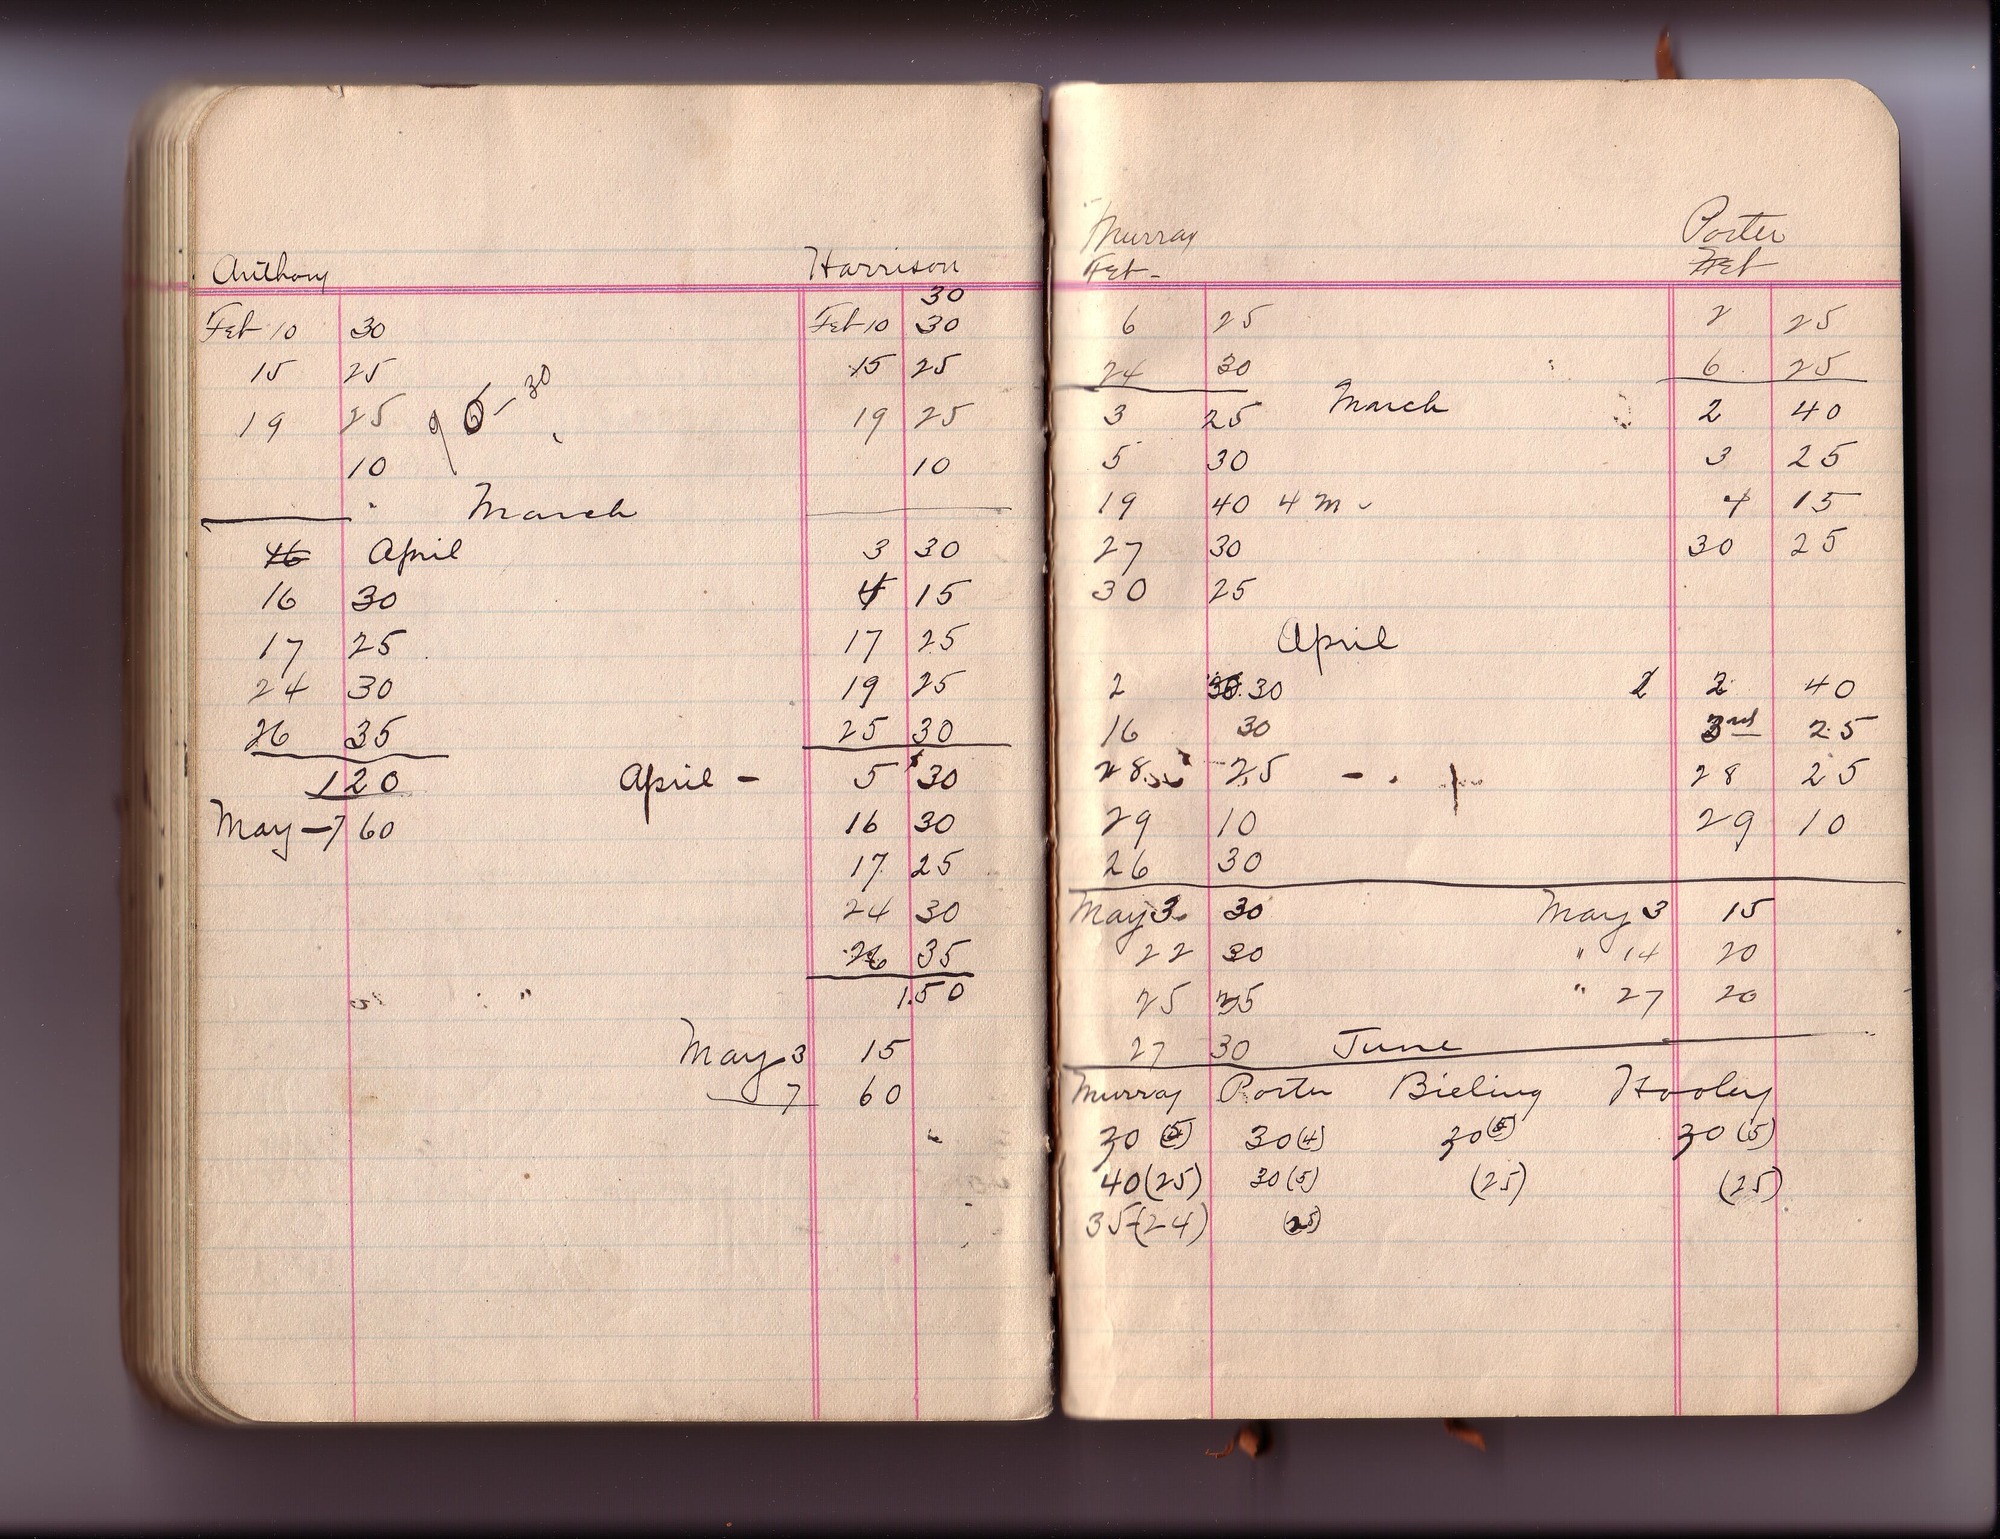 Anthony Harrison
30
Feb 10 30 Feb 10 30
15 25 15 25
19 25 6-30 19 25
10 10
March
16 April 3 30
16 30 4 15
17 25 17 25
24 30 19 25
26 35 25 30
120 April - 5 30
May - 7 60 16 30
17 25
24 30
26 35
150
May 3 15
7 60
Murray Porter
Feb - Feb
6 25 2 25
24 30 6 25
3 25 March 2 40
5 30 3 25
19 40 4 m 4 15
27 30 30 25
30 25
April
2 30 30 2 2 40
16 30 3rd 25
28 25 28 25
29 10 29 10
26 30
May 3 30 May 3 15
22 30 " 14 20
25 35 " 27 20
27 30 June
Murray Porter Bieling Hooley
30 (5) 30 (4) 30 (5) 30 (5)
40 (25) 30 (5) (25) (25)
35 (24) (25)